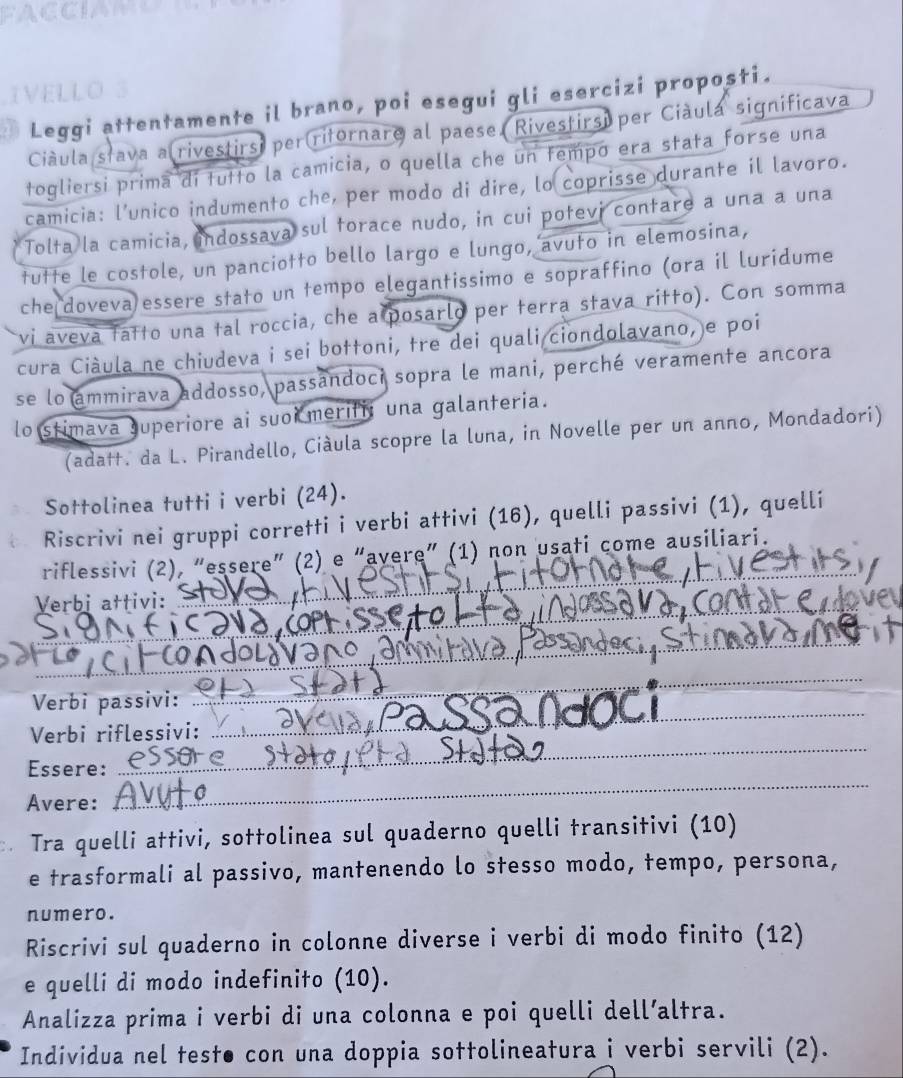 FACCIAMO
LIVELLO 3
Leggi attentamente il brano, poi esegui gli esercizi proposti.
Ciàula stava a rivestirsi per ritornare al paese. Rivestirsi per Ciàula significava
togliersi prima di tutto la camicia, o quella che un tempo era stata forse una
camicia: l'unico indumento che, per modo di dire, lo coprisse durante il lavoro.
Tolta la camicia, indossava sul torace nudo, in cui potevi contare a una a una
tutte le costole, un panciotto bello largo e lungo, avuto in elemosina,
che doveva essere stato un tempo elegantissimo e sopraffino (ora il luridume
vi aveva fatto una tal roccia, che a posarlo per terra stava ritto). Con somma
cura Ciàula ne chiudeva i sei bottoni, tre dei quali ciondolavano, e poi
se lo ammirava addosso, passandoci sopra le mani, perché veramente ancora
lo stimava superiore ai suoi meriti: una galanteria.
(adatt. da L. Pirandello, Ciàula scopre la luna, in Novelle per un anno, Mondadori)
Sottolinea tutti i verbi (24).
Riscrivi nei gruppi corretti i verbi attivi (16), quelli passivi (1), quelli
riflessivi (2), "essere" (2) e "avere" (1) non usati come ausiliari.
Verbi attivi: stava, rivestirsi, ritornare, rivestirsi,
significava, coprisse, tolta, indossava, contare, dovev
sarlo, circondolavano, ammirava, passandoci, stimava, merit
Verbi passivi: era stata
Verbi riflessivi: vi aveva, passandoci
Essere: essere stato, era stata
Avere: Avuto
Tra quelli attivi, sottolinea sul quaderno quelli transitivi (10)
e trasformali al passivo, mantenendo lo stesso modo, tempo, persona,
numero.
Riscrivi sul quaderno in colonne diverse i verbi di modo finito (12)
e quelli di modo indefinito (10).
Analizza prima i verbi di una colonna e poi quelli dell'altra.
Individua nel testo con una doppia sottolineatura i verbi servili (2).